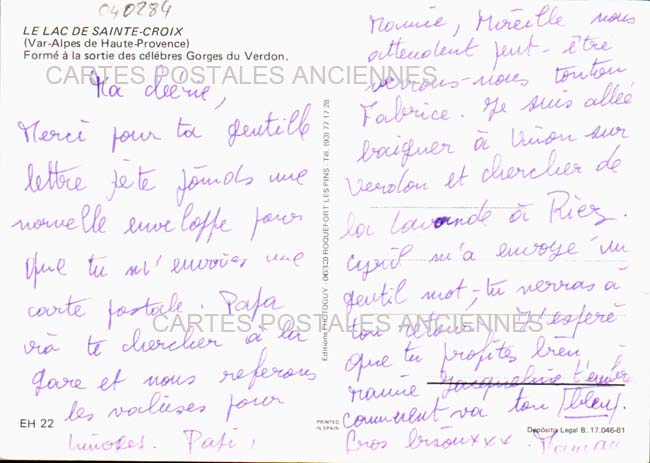 040284
LE LAC DE SAINTE-CROIX
(Var-Alpes de Haute-Provence)
Formé à la sortie des célébres Gorges du Verdon.
CARTES POSTALES ANCIENNES
Ma chérie,
Merci pour ta gentille
lettre je te joinds une
nouvelle enveloppe pour
que tu m'envoies une
carte postale. Papa
va te chercher à la
gare et nous referons
les valises pour
Limoges. Papi,
EH 22
Editions PHOTOGUY - 06330 ROQUEFORT LES PINS Tél. (93) 77 17 28
PRINTED IN SPAIN
Mamie, Mireille nous
attendent peut-être
verrons-nous tonton
Fabrice. Je suis allée
baigner à Vinon sur
Verdon et chercher de
la lavande à Riez.
Cyril m'a envoyé un
gentil mot, tu verras à
ton retour. J'espère
que tu profites bien
CARTES POSTALES ANCIENNES
mamie Jacqueline t'embr
comment va ton bleu.
Gros bisouxxx. Maman
Depósito Legal B. 17.046-81